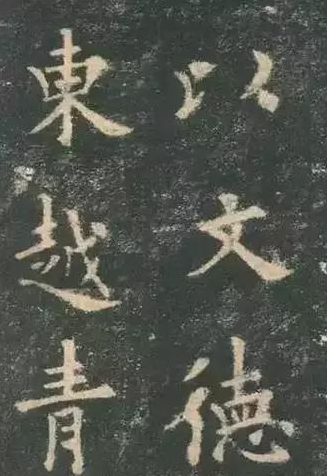 以文德
東越青